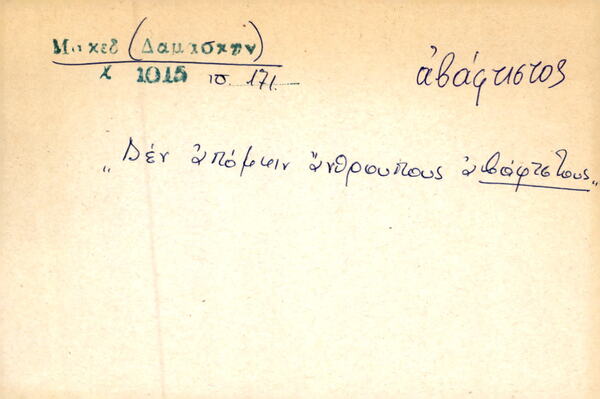 Μακεδ (Δαμασκην)
χ 1015 σ. 171. ἀβάφτιστος
„Δέν ἀπόμειν ἄνθρουπους ἀβάφτστους„